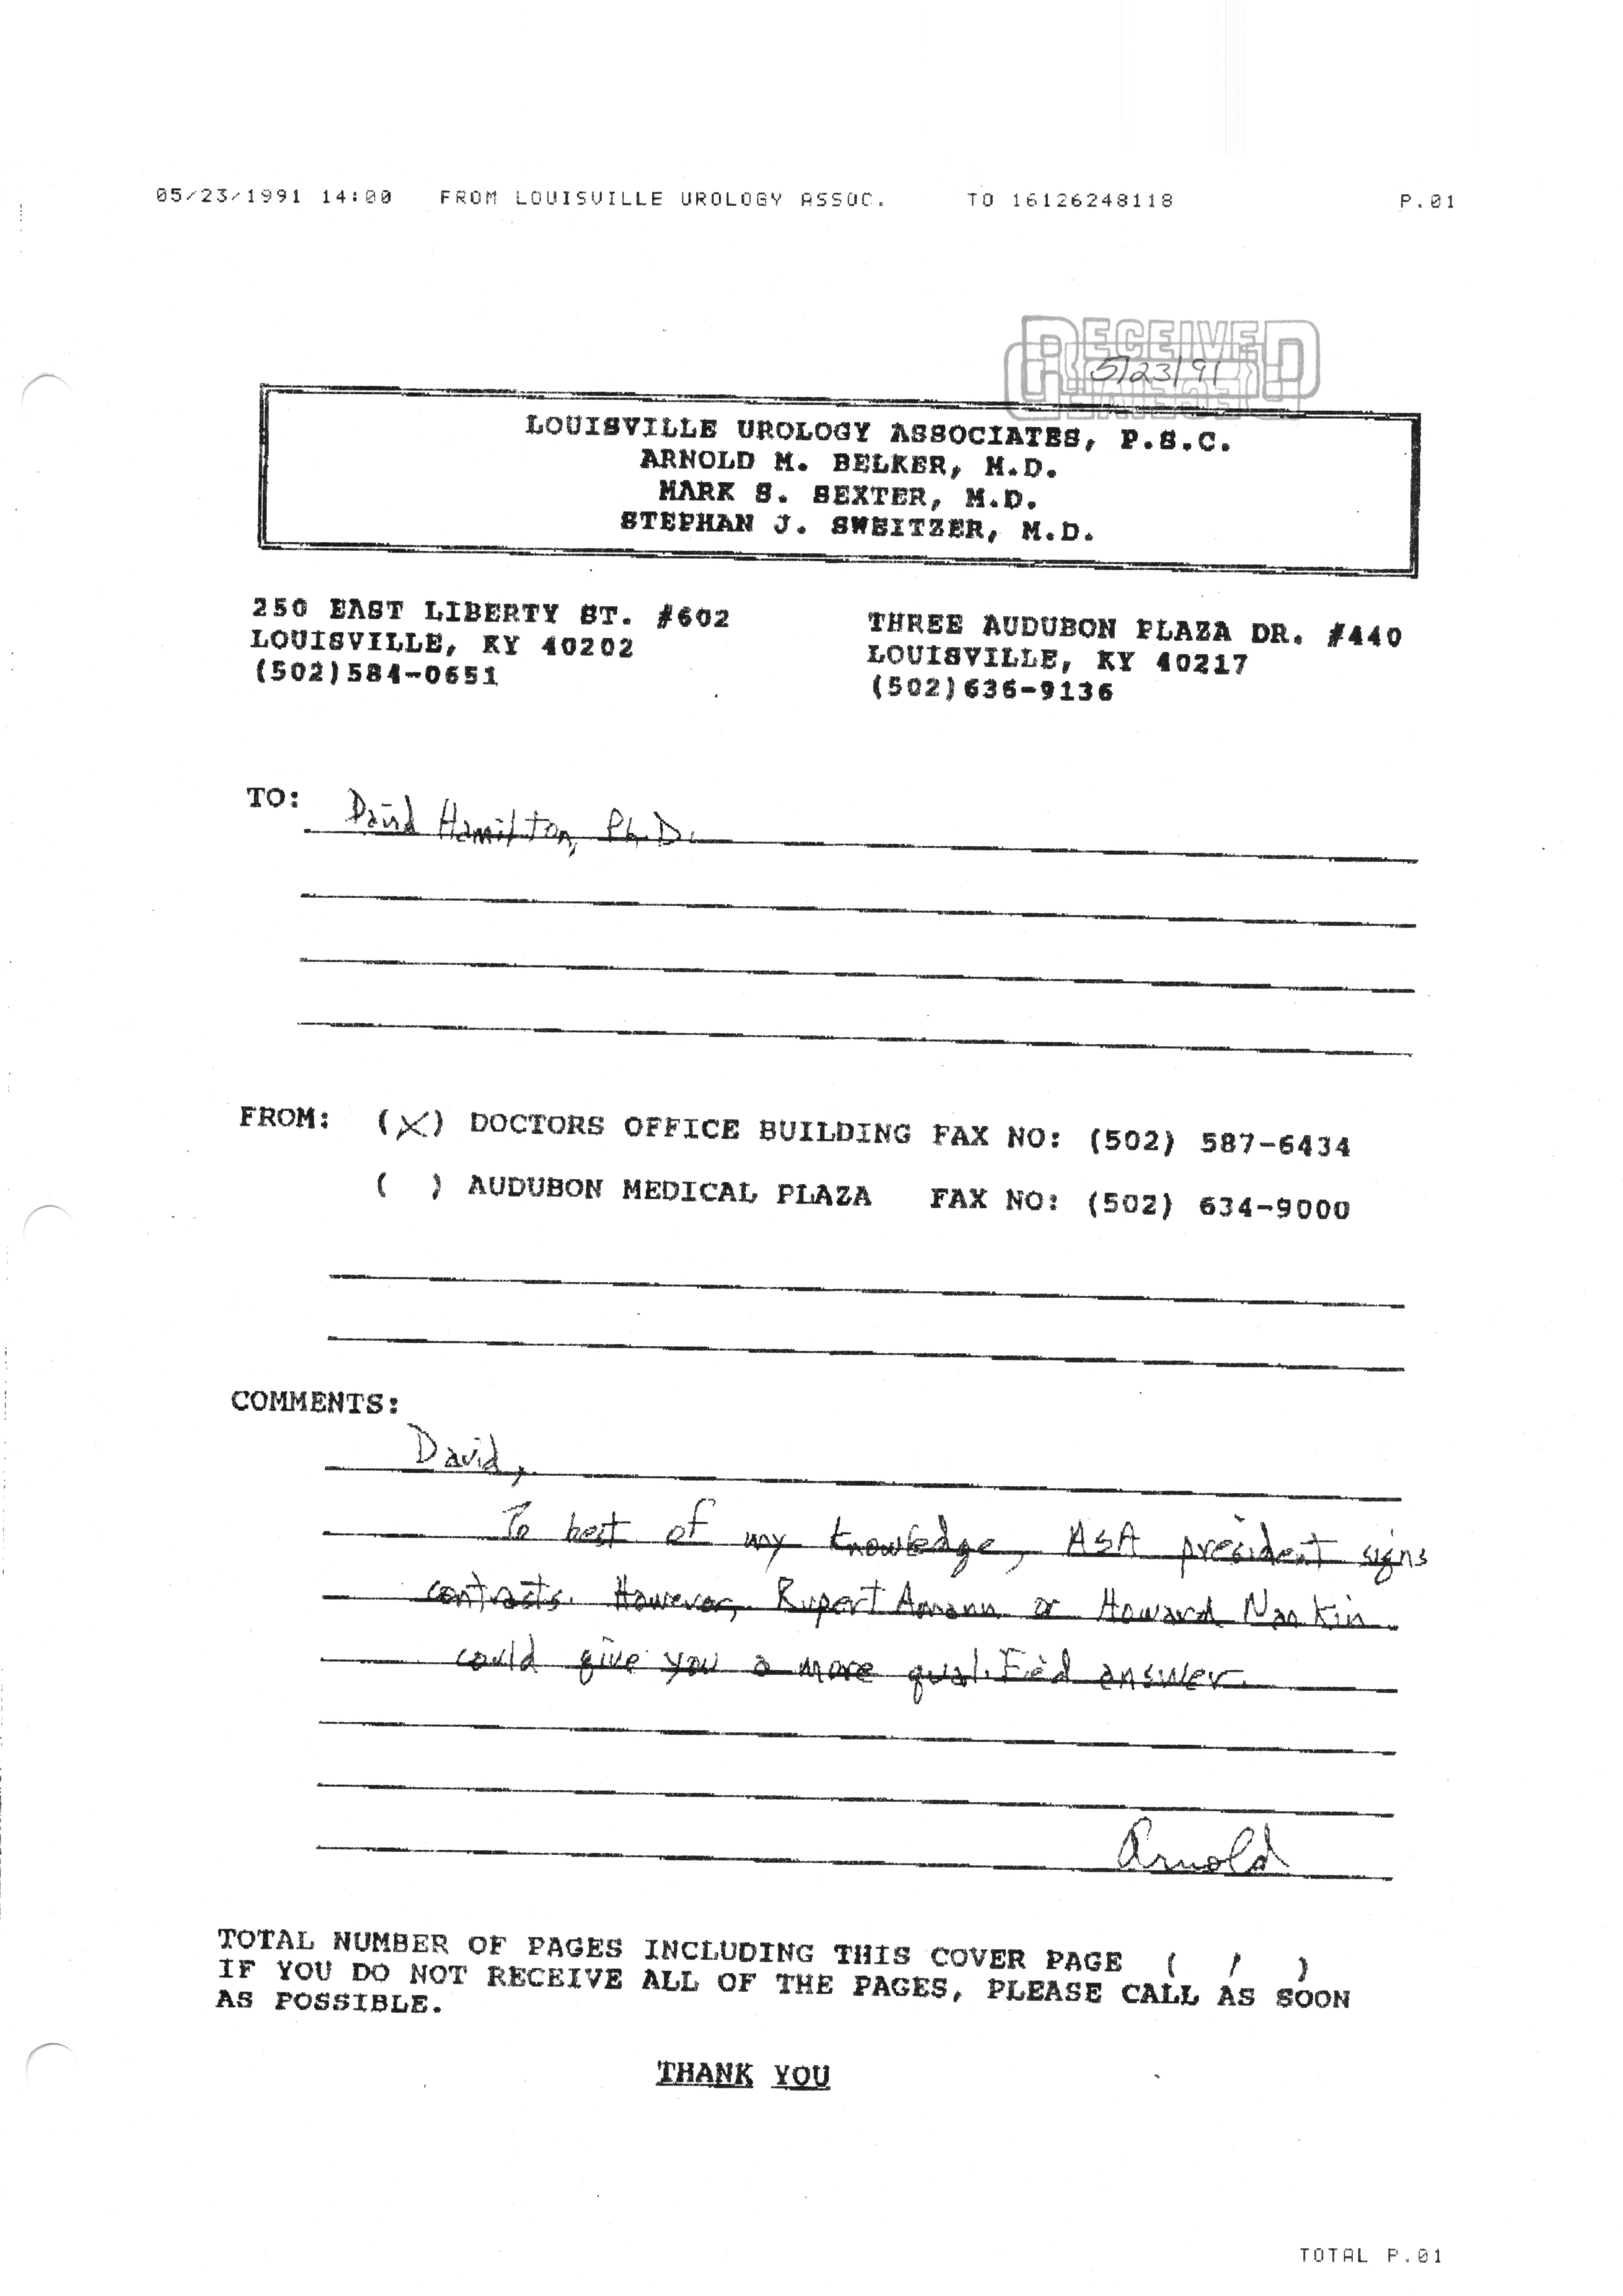 05/23/1991 14:00 FROM LOUISVILLE UROLOGY ASSOC. TO 16126248118 P.01
RECEIVED
5/23/91
LOUISVILLE UROLOGY ASSOCIATES, P.S.C.
ARNOLD M. BELKER, M.D.
MARK S. SEXTER, M.D.
STEPHAN J. SWEITZER, M.D.
250 EAST LIBERTY ST. #602
LOUISVILLE, KY 40202
(502)584-0651
THREE AUDUBON PLAZA DR. #440
LOUISVILLE, KY 40217
(502)636-9136
TO: David Hamilton, Ph.D.
FROM: (X) DOCTORS OFFICE BUILDING FAX NO: (502) 587-6434
( ) AUDUBON MEDICAL PLAZA FAX NO: (502) 634-9000
COMMENTS:
David,
To best of my knowledge, ASA president signs
contracts. However, Rupert Amann or Howard Nankin
could give you a more qualified answer.
Arnold
TOTAL NUMBER OF PAGES INCLUDING THIS COVER PAGE ( 1 )
IF YOU DO NOT RECEIVE ALL OF THE PAGES, PLEASE CALL AS SOON
AS POSSIBLE.
THANK YOU
TOTAL P.01